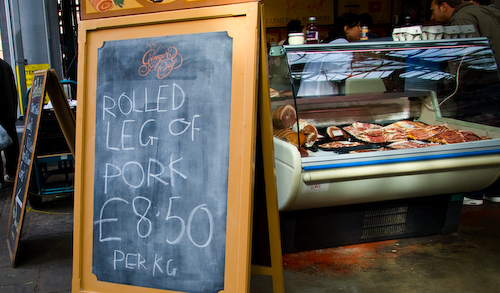 ROLLED
LEG OF
PORK
£8.50
PER KG